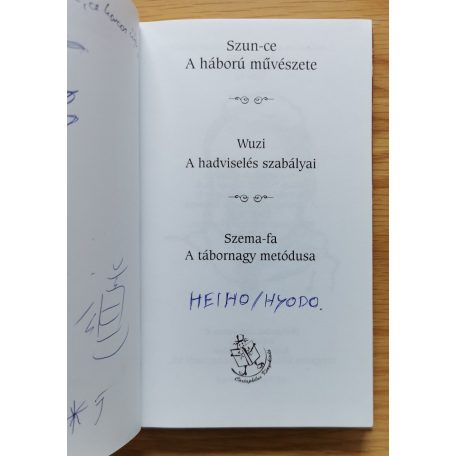 Szun-ce
A háború művészete
Wuzi
A hadviselés szabályai
Szema-fa
A tábornagy metódusa
HEIHO/HYODO.
道